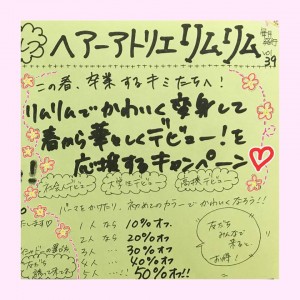 ヘアーアトリエリムリム
毎日
発行
vol
39
この春、卒業するキミたちへ!
リムリムでかわいく変身して
春から華々しくデビュー!を
応援するキャンペーン♡
社会人デビュー
大学生デビュー
高校デビュー
パーマをかけたり、初めてのカラーでかわいくなろう!!
1人なら 10%オフ.
2人 … 20%オフ
3人 … 30%オフ
4人 … 40%オフ
5人 … 50%オフ!!
友だち
みんなで
来ると
お得!